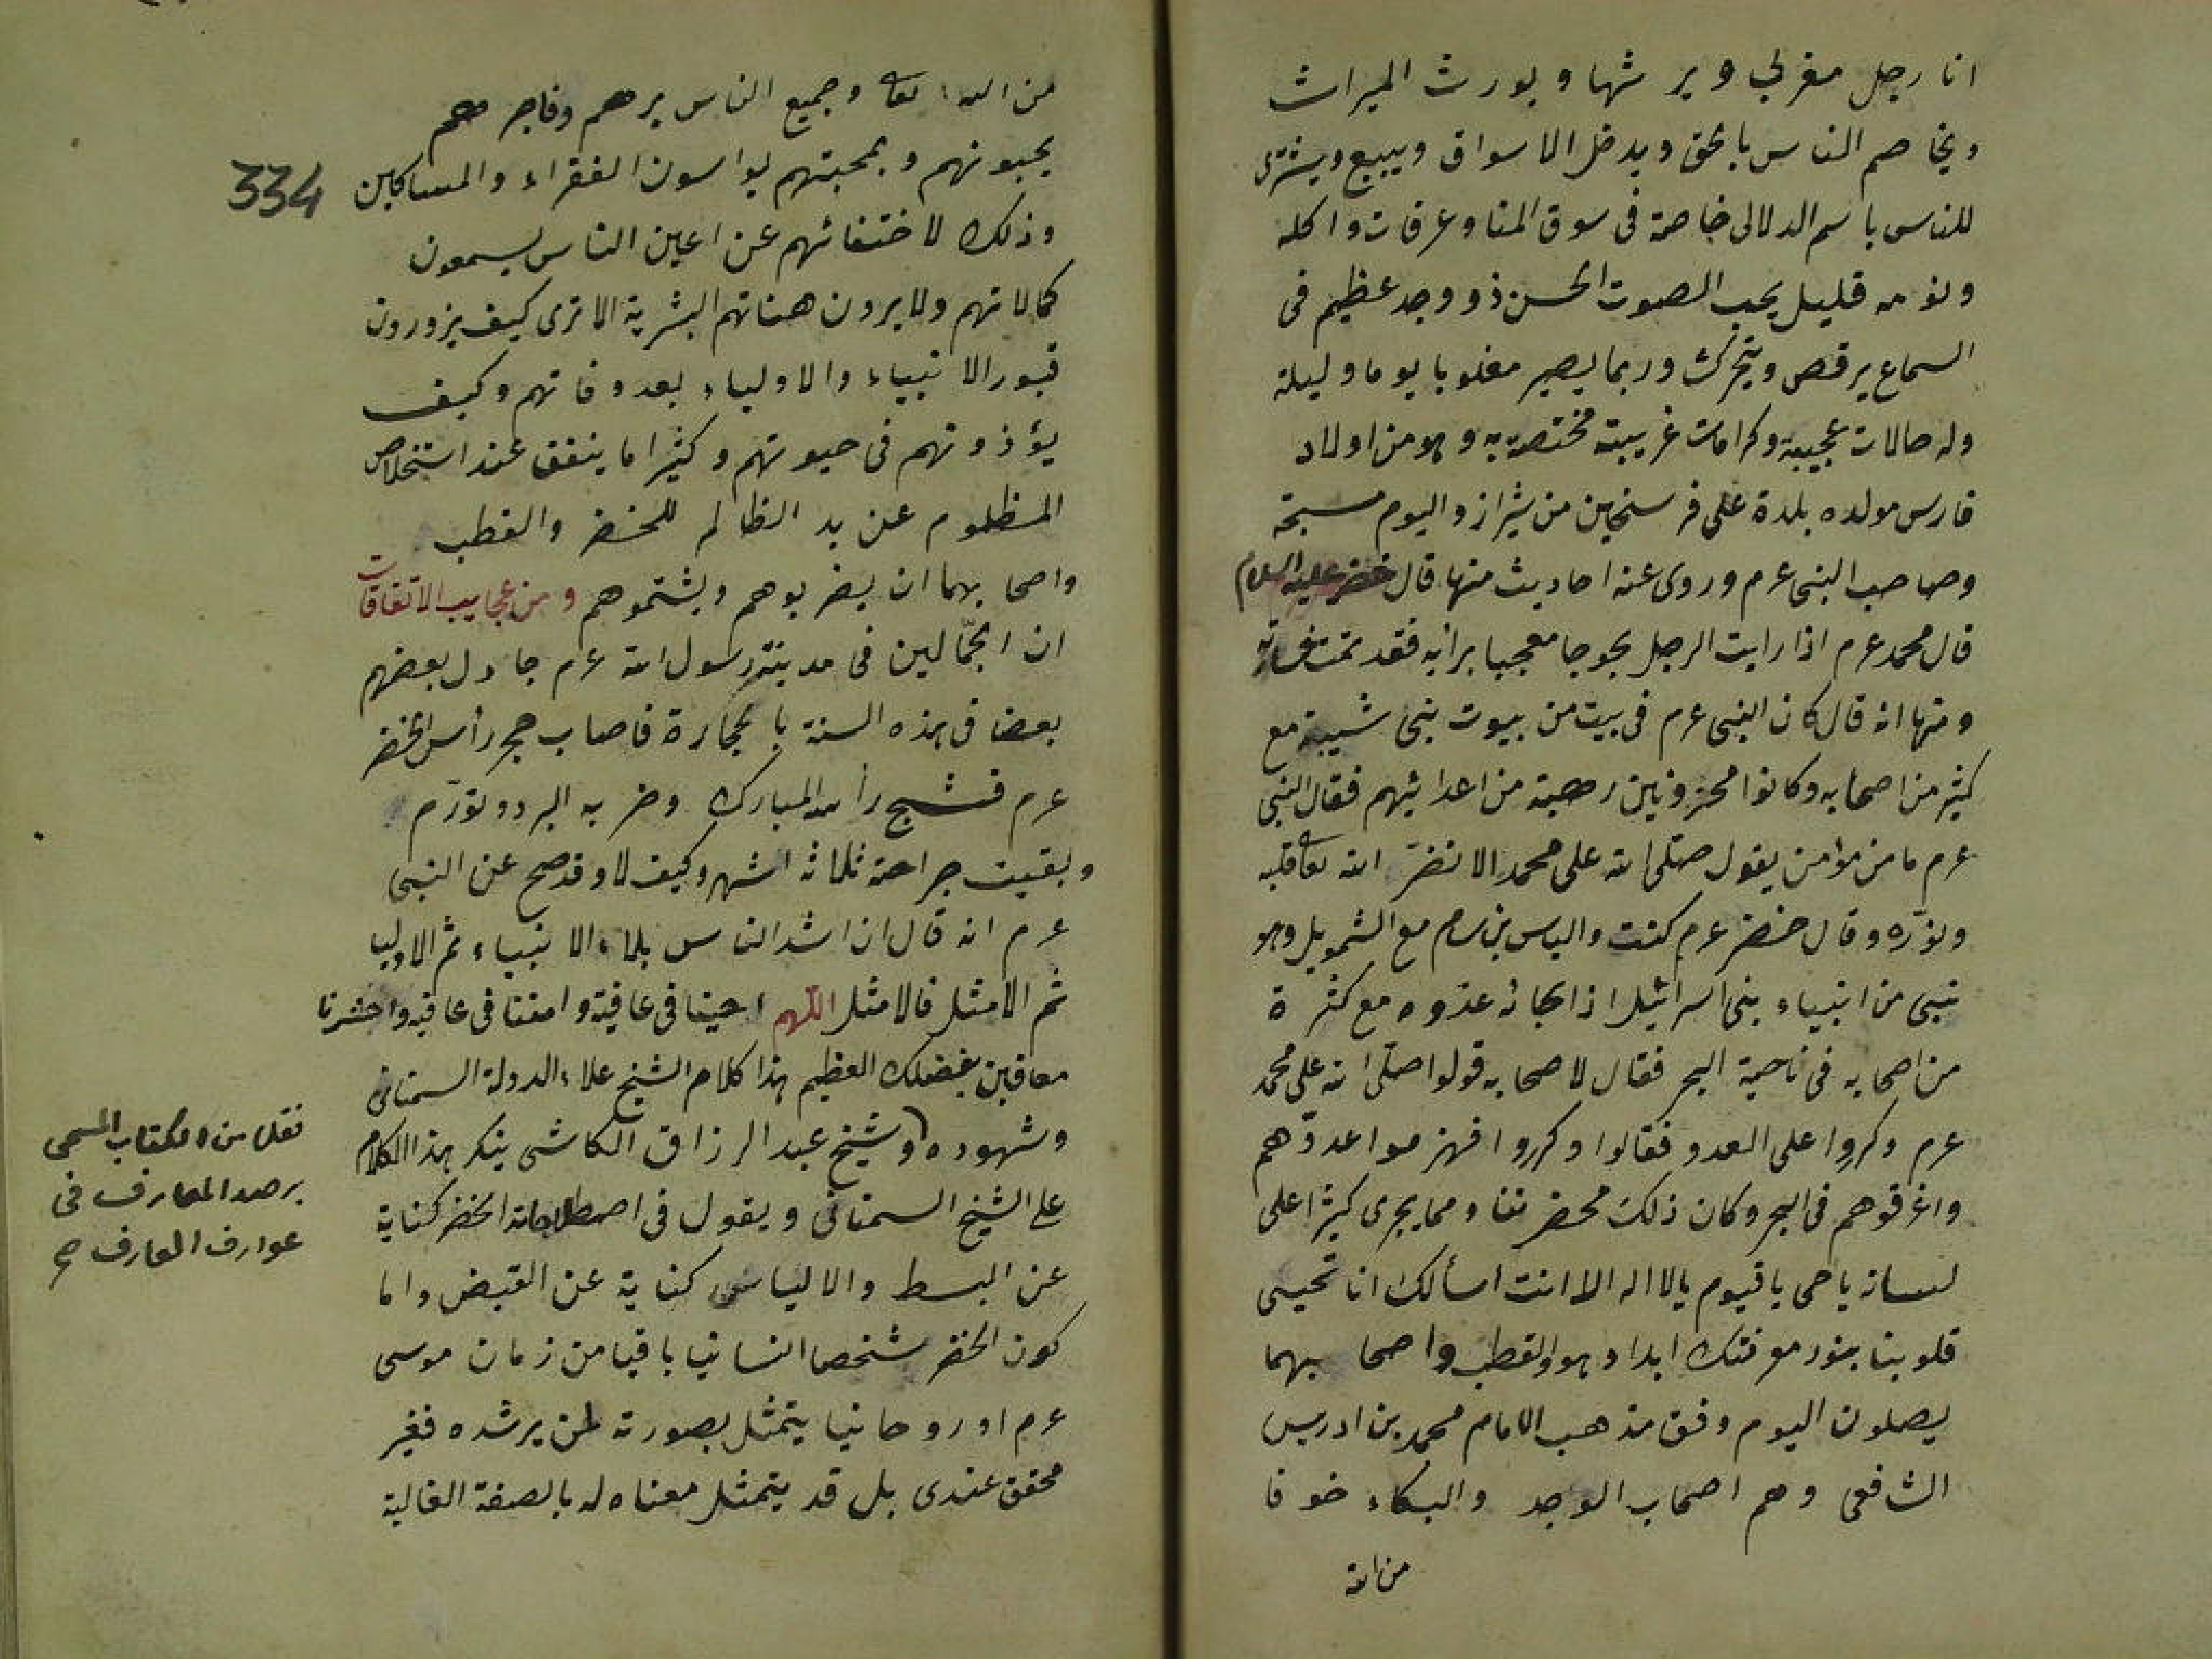 انا رجل مغربي ويرشها ويورث الميراث
ويخاصم الناس بالحق ويدخل الاسواق ويبيع ويشترى
للناس باسم الدلالى خاصة فى سوق المنا وعرفات واكله
ونومه قليل يحب الصوت الحسن ذو وجد عظيم فى
السماع يرقص ويتحرك وربما يصير مغلوبا يوما وليلة
وله حالات عجيبة وكرامات غريبة مختصة به وهو من اولاد
فارس مولده بلدة على فرسخين من شيراز واليوم
وصاحب النبى عرم وروى عنه احاديث منها قال خضر عليه السلام
قال محمد عرم اذا رايت الرجل لجوجا معجبا برايه فقد تمت خسارته
ومنها انه قال كان النبى عرم فى بيت من بيوت بنى شيبة مع
كثير من اصحابه وكانوا محزونين من اعدائهم فقال النبى
عرم ما من مؤمن يقول صلى الله على محمد الا نضر الله تعا قلبه
ونوّره وقال خضر عرم كنت والياس بن سام مع الشمويل وهو
نبى من انبياء بنى اسرائيل اذا لجائه عدوه مع كثرة
من اصحابه فى ناحية البحر فقال لاصحابه قولوا صلى الله على محمد
عرم وكروا على العدو فقالوا وكرروا فهزموا عدوّهم
واغرقوهم فى البحر وكان ذلك محضرتنا ومما يجرى كثيرا على
لسانه ياحى ياقيوم يالا اله الا انت اسألك ان تحيى
قلوبنا بنور معرفتك ابدا وهو والقطب واصحابهما
يصلون اليوم وفق مذهب الامام محمد بن ادريس
الشافعى وهم اصحاب الوجد والبكاء خوفا
من الله
من الله تعا وجميع الناس برهم وفاجرهم
يحبونهم وبمحبتهم يواسون الفقراء والمساكين
وذلك لاختفائهم عن اعين الناس يسمعون
كمالاتهم ولا يرون هناتهم البشرية الا ترى كيف يزورون
قبور الانبياء والاولياء بعد وفاتهم وكيف
يؤذونهم فى حيوتهم وكثيرا ما يتفق عند استخلاص
المظلوم عن يد الظالم للخضر والقطب
واصحابهما ان يضربوهم ويشتموهم ومن عجايب الاتفاقات
ان الجمّالين فى مدينة رسول الله عرم جادل بعضهم
بعضا فى هذه السنة بالحجارة فاصاب حجر رأس الخضر
عرم فشج رأسه المبارك وضربه البرد وتورّم
وبقيت جراحته ثلاثة اشهر وكيف لا وقد صح عن النبى
عرم انه قال ان اشد الناس بلاء الانبياء ثم الاوليا
ثم الامثل فالامثل اللهم احينا فى عافية وامتنا فى عافية واحشرنا
معافين بفضلك العظيم هذا كلام الشيخ علاء الدولة السمنانى
وشهوده وشيخ عبد الرزاق الكاشى ينكر هذا الكلام
على الشيخ السمنانى ويقول فى اصطلاحاته الخضر كناية
عن البسط والالياس كناية عن القبض واما
كون الخضر شخصا انسانيا باقيا من زمان موسى
عرم او روحانيا يتمثل بصورته لمن يرشده فغير
محقق عندى بل قد يتمثل معناه له بالصفة الغالبة
334
نقل من الكتاب المسمى
برصد المعارف فى
عوارف المعارف صح